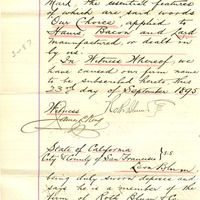 Mark, the essential features
of which are said words
"Our Choice", applied to
Hams, Bacon and Lard
manufactured, or dealt in
by us.
In Witness Whereof, we
have caused our firm name
to be subscribed hereto, this
23rd day of September 1895
Witness
State of California
City & County of San Francisco } S.S
Blum,
being duly sworn deposes and
says he is a member of the
firm of Roth Blum & Co.